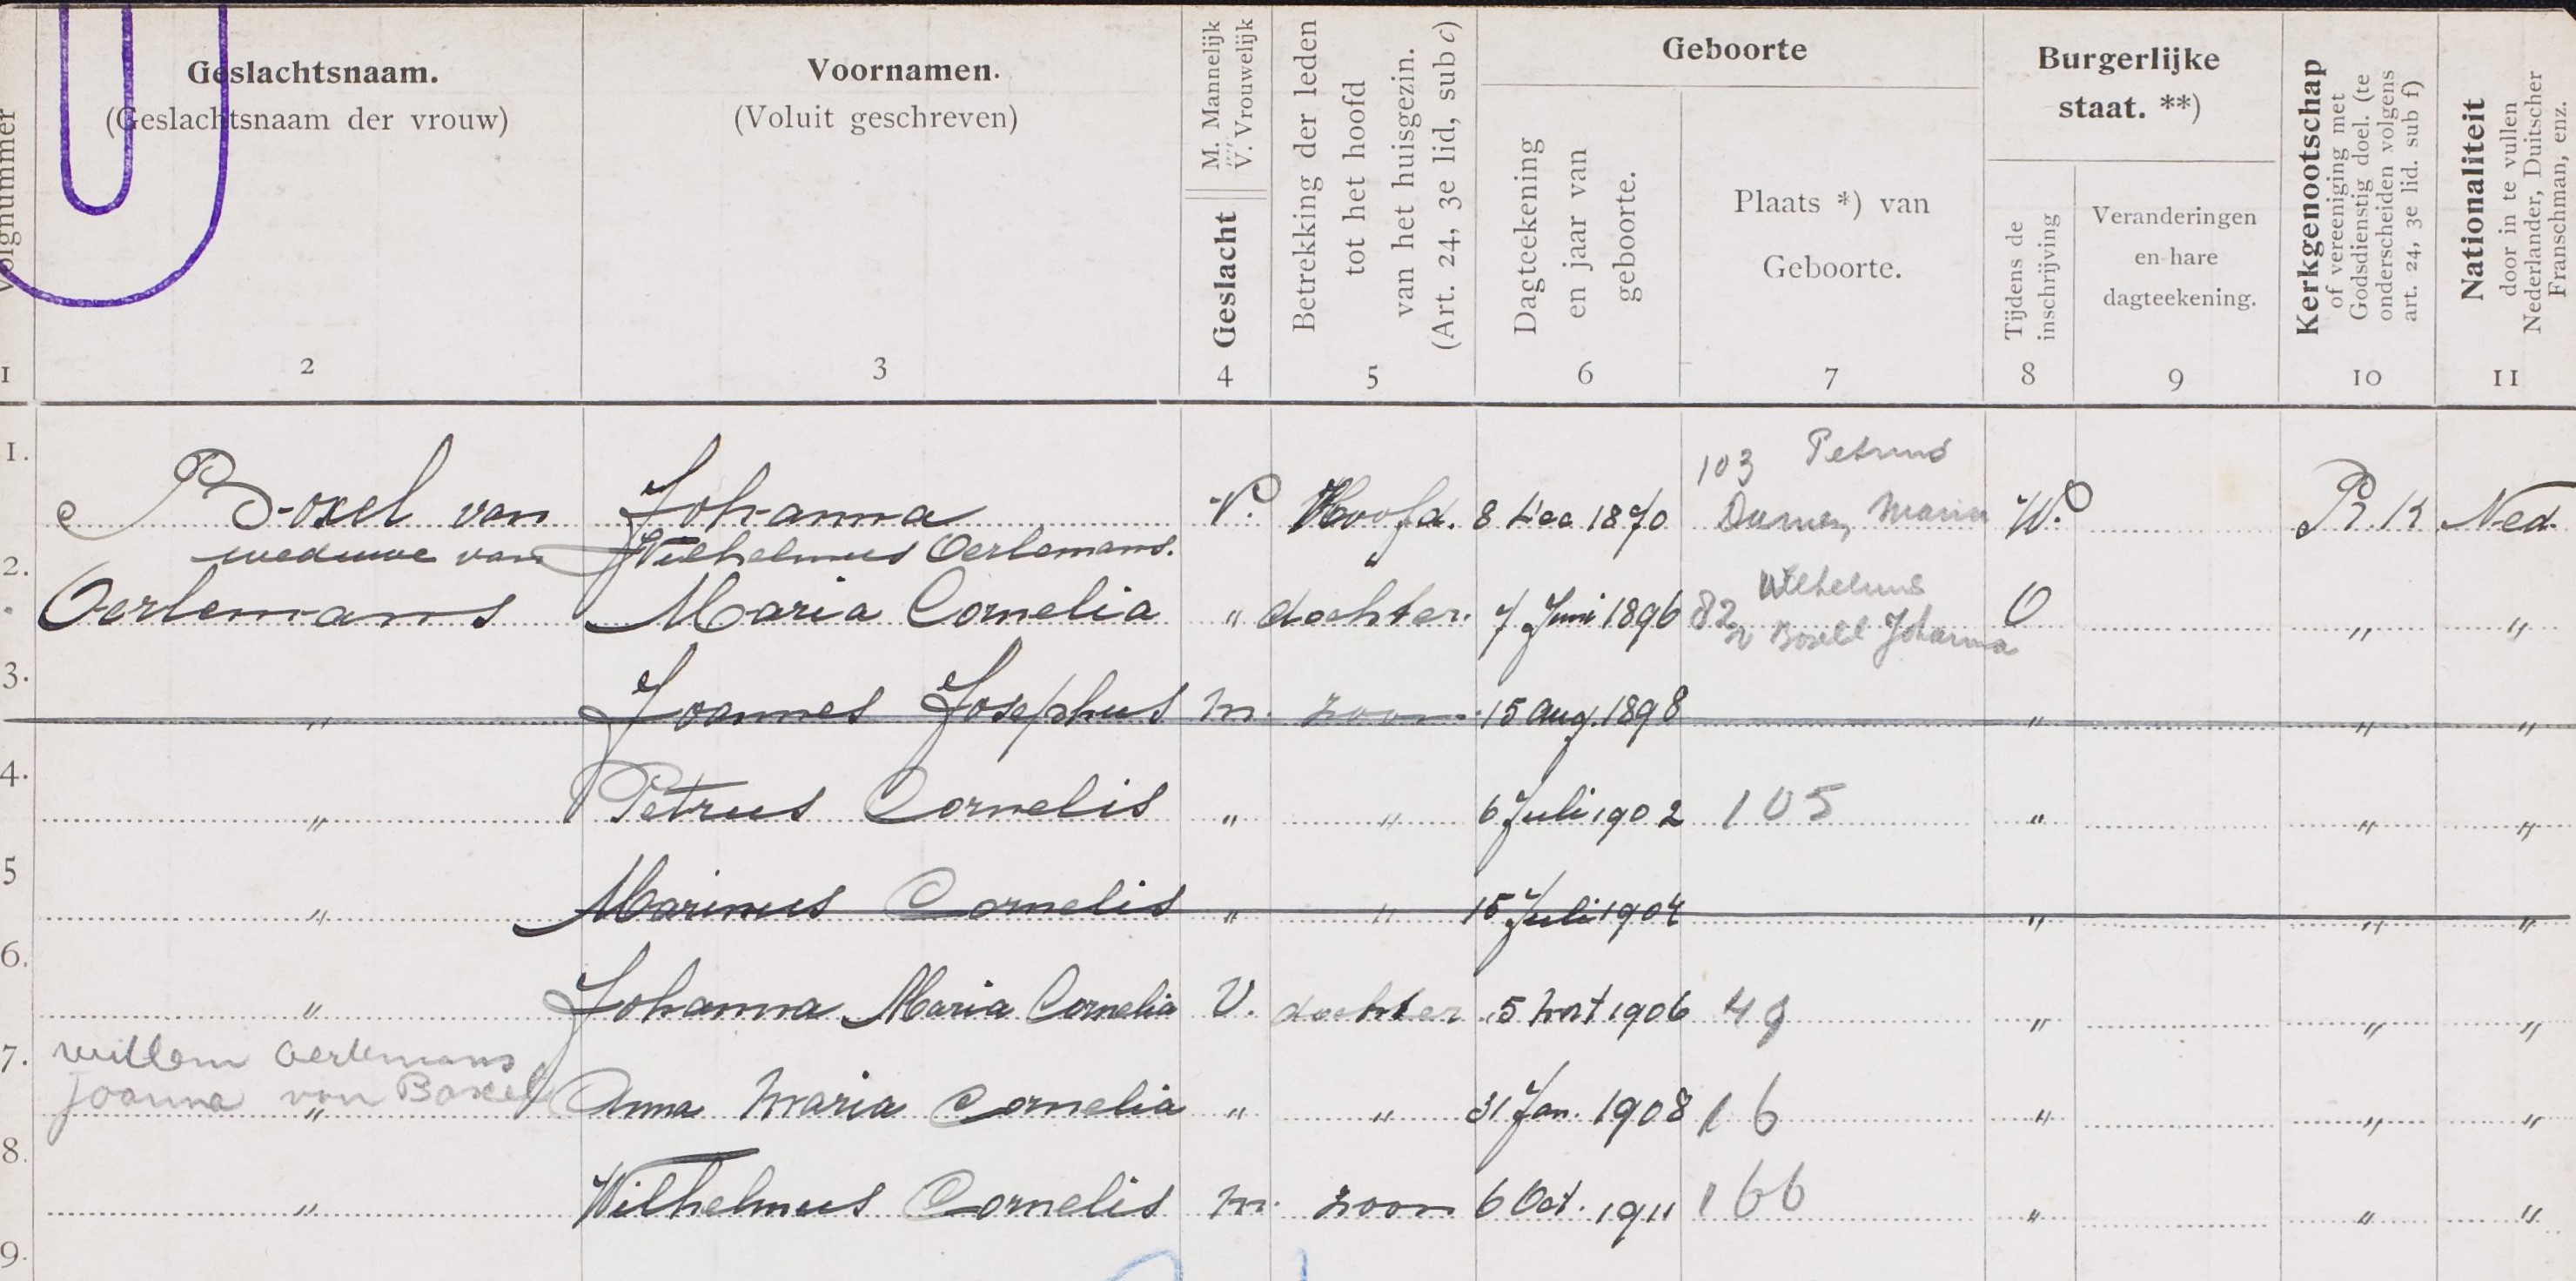 Volgnummer
1
Geslachtsnaam.
(Geslachtsnaam der vrouw)
2
Voornamen.
(Voluit geschreven)
3
M. Mannelijk
V. Vrouwelijk
Geslacht
4
Betrekking der leden
tot het hoofd
van het huisgezin.
(Art. 24, 3e lid, sub c)
5
Geboorte
Dagteekening
en jaar van
geboorte.
6
Plaats *) van
Geboorte.
7
Burgerlijke
staat. **)
Tijdens de
inschrijving
8
Veranderingen
en hare
dagteekening.
9
Kerkgenootschap
of vereeniging met
Godsdienstig doel. (te
onderscheiden volgens
art. 24, 3e lid. sub f)
10
Nationaliteit
door in te vullen
Nederlander, Duitscher
Franschman, enz.
11
103 Petrus
1. Boxel van Johanna V. Hoofd. 8 Dec 1870 Maria W. R.K Ned.
weduwe van Wilhelmus Oerlemans.
Wilhelmus
2. Oerlemans Maria Cornelia " dochter. 7 Juni 1896 82 O " "
v Boxel Johanna
3. " Joannes Josephus m. zoon 15 aug. 1898 " " "
4. " Petrus Cornelis " " 6 Juli 1902 105 " " "
5 " Marinus Cornelis " " 15 Juli 1904 " " "
6. " Johanna Maria Cornelia V. dochter 5 mrt 1906 49 " " "
willem oerlemans
joanna van Boxel
7. " Anna Maria Cornelia " " 31 Jan. 1908 16 " " "
8. " Wilhelmus Cornelis m. zoon 6 Oct. 1911 166 " " "
9.